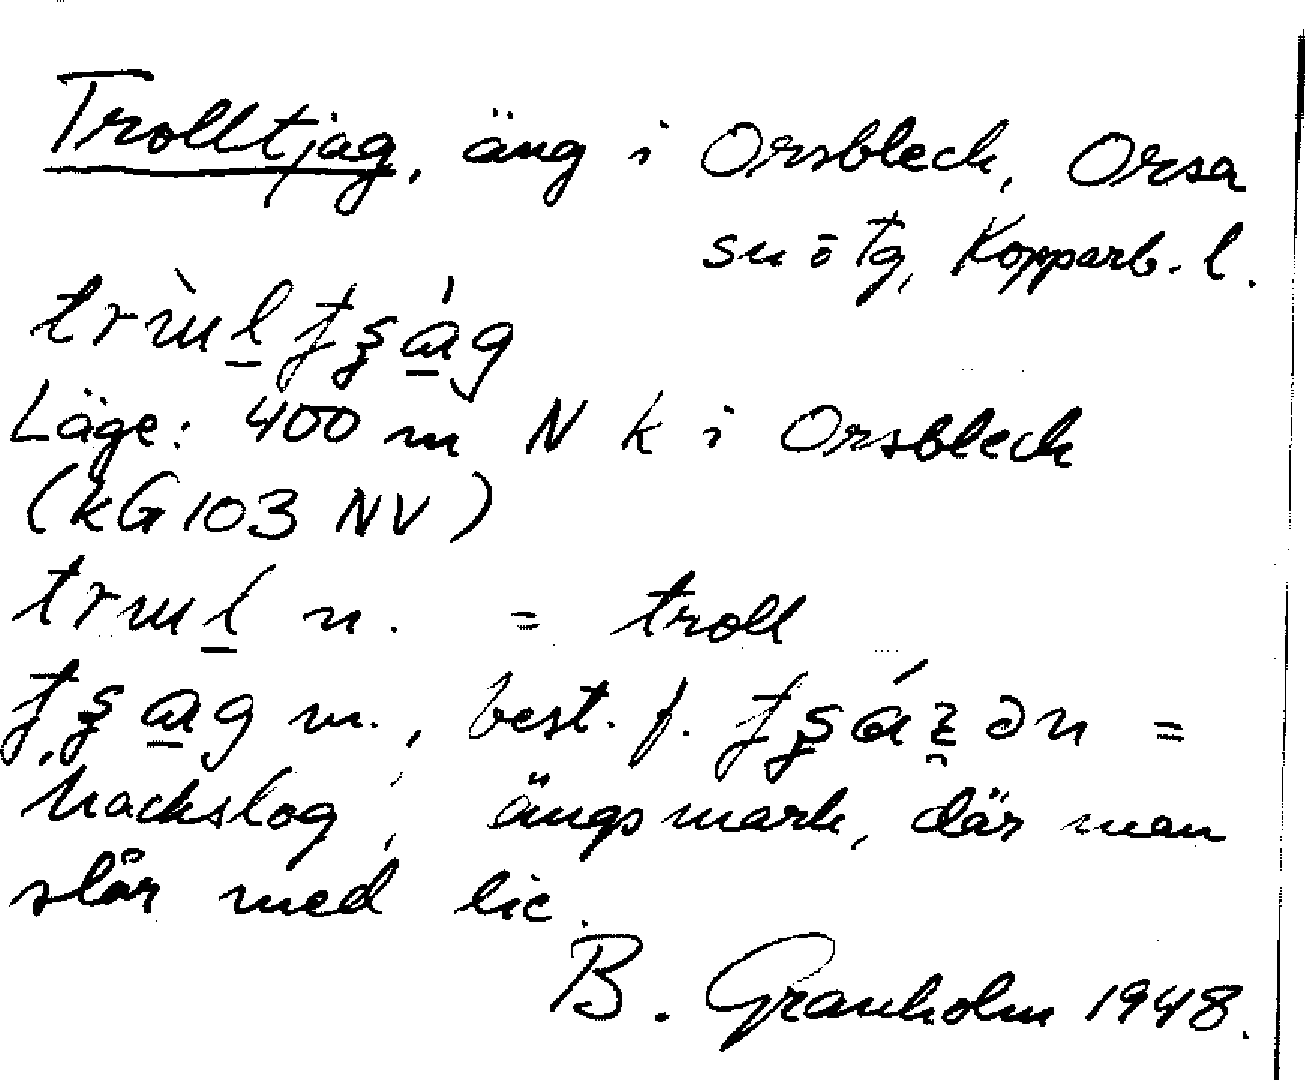 Trolltjag, äng i Orsbleck, Orsa
sn ö tg, Kopparb. l.
Läge: 400 m N k i Orsbleck
(kG 103 NV)
n. = troll
m., best. f. =
hackslog, ängsmark, där man
slår med lie.
B. Granholm 1948.